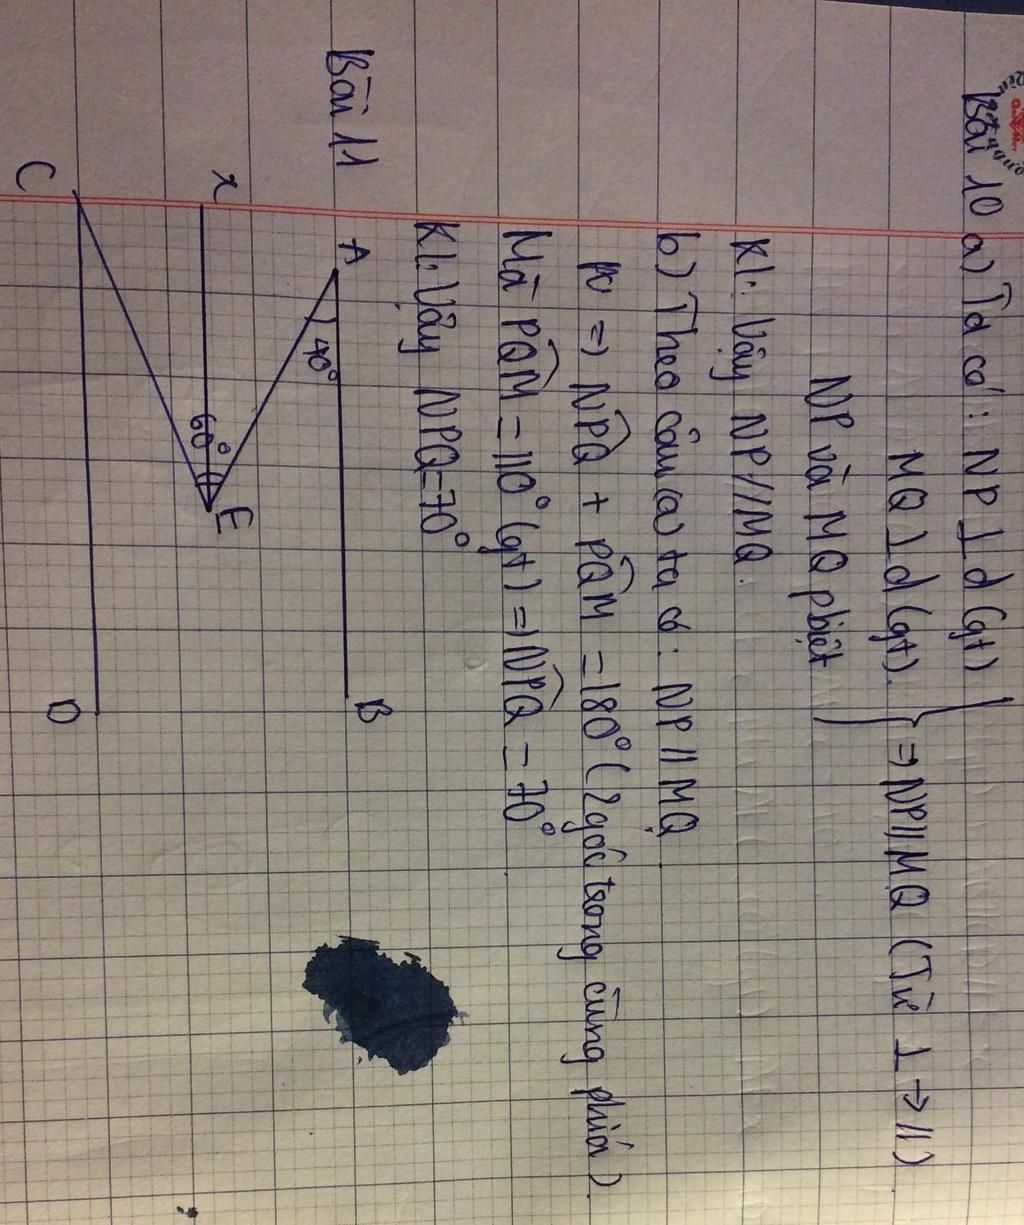 Bài 10 a) Ta có: NP ⊥ d (gt)
MQ ⊥ d (gt).
NP và MQ pbiệt
=> NP//MQ (Từ ⊥ → //)
Kl: Vậy NP//MQ.
b) Theo câu (a) ta có: NP // MQ.
=> NPQ + PQM = 180° (2 góc trong cùng phía).
Mà PQM = 110° (gt) => NPQ = 70°.
Kl: Vậy NPQ = 70°
Bài 11
A
B
40°
x
60°
E
C
D